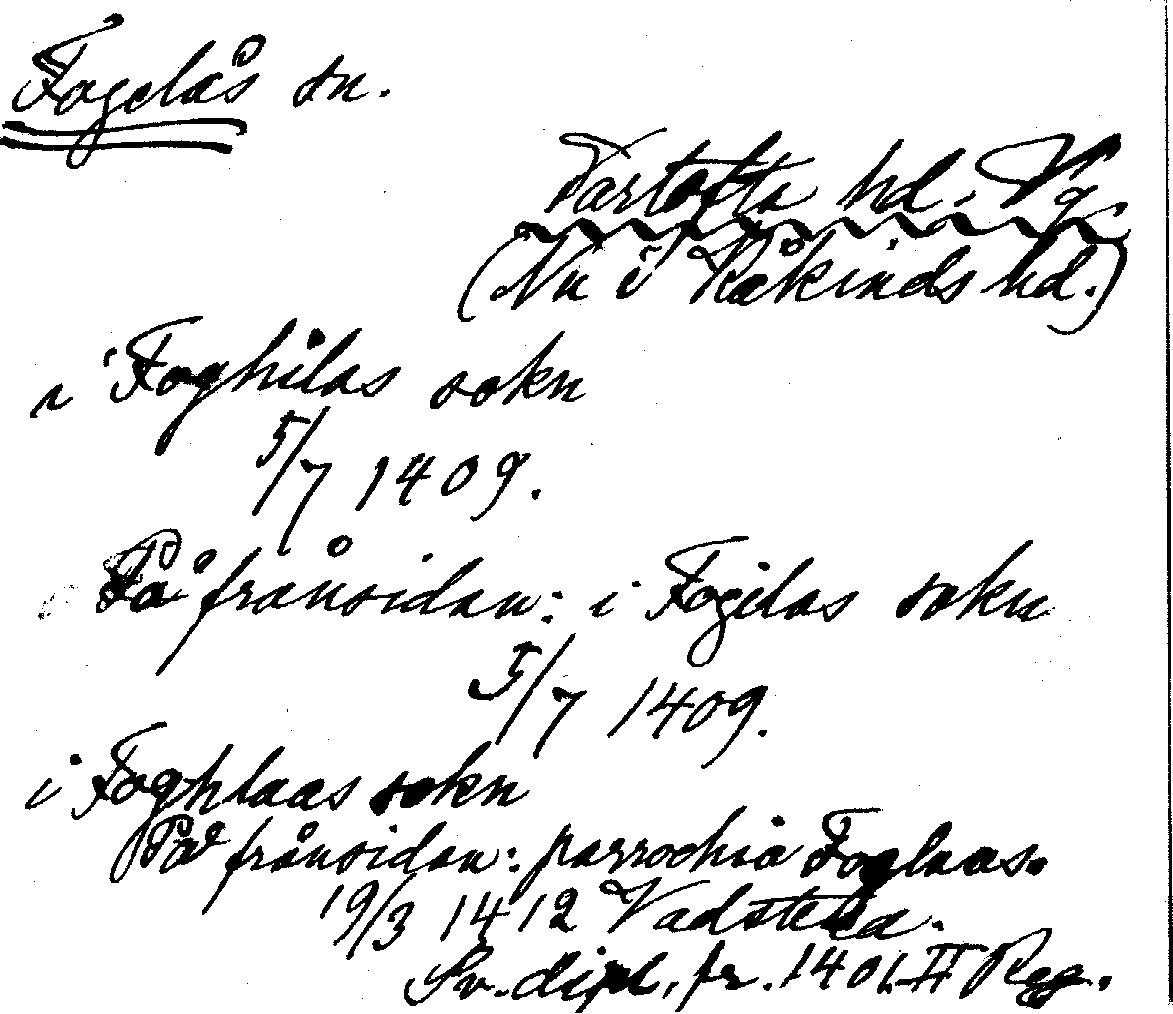 Fogelås sn.
Vartofta hd. Vg.
(Nu i Kåkinds hd.)
i Foghilas sokn
5/7 1409.
På frånsidan: i Fogilas sokn
5/7 1409.
i Foghlaas sokn
På frånsidan: parrochia Foglaas.
19/3 1412 Vadstena.
Sv. dipl. fr. 1401. II Reg.